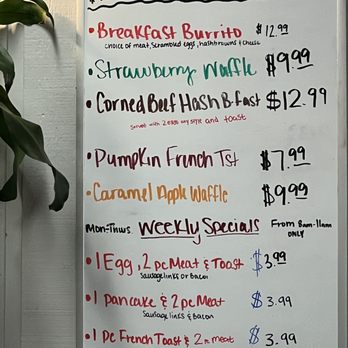 • Breakfast Burrito $12.99
choice of meat, scrambled eggs, hashbrowns & cheese
• Strawberry Waffle $9.99
• Corned Beef Hash B-fast $12.99
served with 2 eggs any style and toast
• Pumpkin French Tst $7.99
• Caramel Apple Waffle $9.99
Mon-Thurs Weekly Specials From 8am-11am ONLY
• 1 Egg, 2 pc Meat & Toast $3.99
Sausage links or bacon
• 1 pancake & 2 pc Meat $3.99
Sausage links & bacon
• 1 Pc French Toast & 2 pc meat $3.99